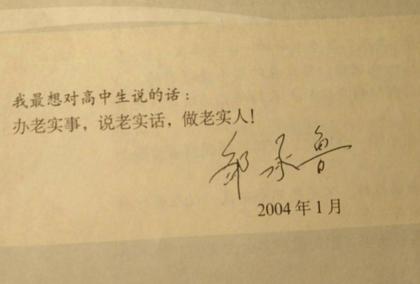 我最想对高中生说的话：
办老实事，说老实话，做老实人！
邹承鲁
2004年1月